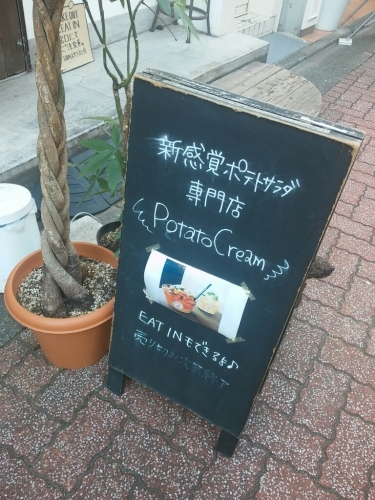 新感覚ポテトサラダ
専門店
PotatoCream
EAT INもできるよ♪
売り切れ次第終了
EAT IN